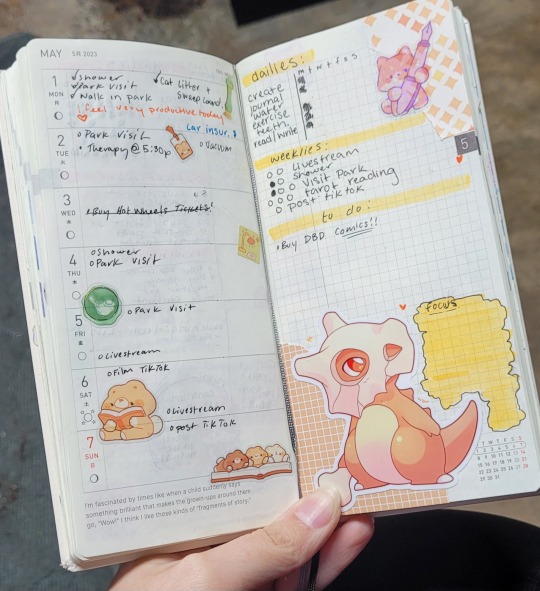 MAY 5月 2023
1 MON 月
✓shower
✓Park visit
✓Walk in park
✓Cat litter +
Sweep
I feel very productive today
2 TUE 火
o Park Visit
• Therapy @ 5:30p
Car insur.
o Vacuum
3 WED 水
Buy Hot Wheels Tickets!
4 THU 木
o Shower
o Park visit
5 FRI 金
o Park visit
o Livestream
6 SAT 土
o Film TikTok
o Livestream
7 SUN 日
o post TikTok
I'm fascinated by times like when a child suddenly says
something brilliant that makes the grown-ups around them
go, "Wow!" I think I like those kinds of "fragments of story."
dailies:
m t w t f s s
create
journal
water
exercise
teeth
read/write
5
weeklies:
o o Livestream
o o Shower
o o Visit Park
o o o tarot reading
o post tiktok
to do:
• Buy DBD Comics!!
focus
5
S M T W T F S
1 2 3 4 5 6 7
8 9 10 11 12 13 14
15 16 17 18 19 20 21
22 23 24 25 26 27 28
29 30 31